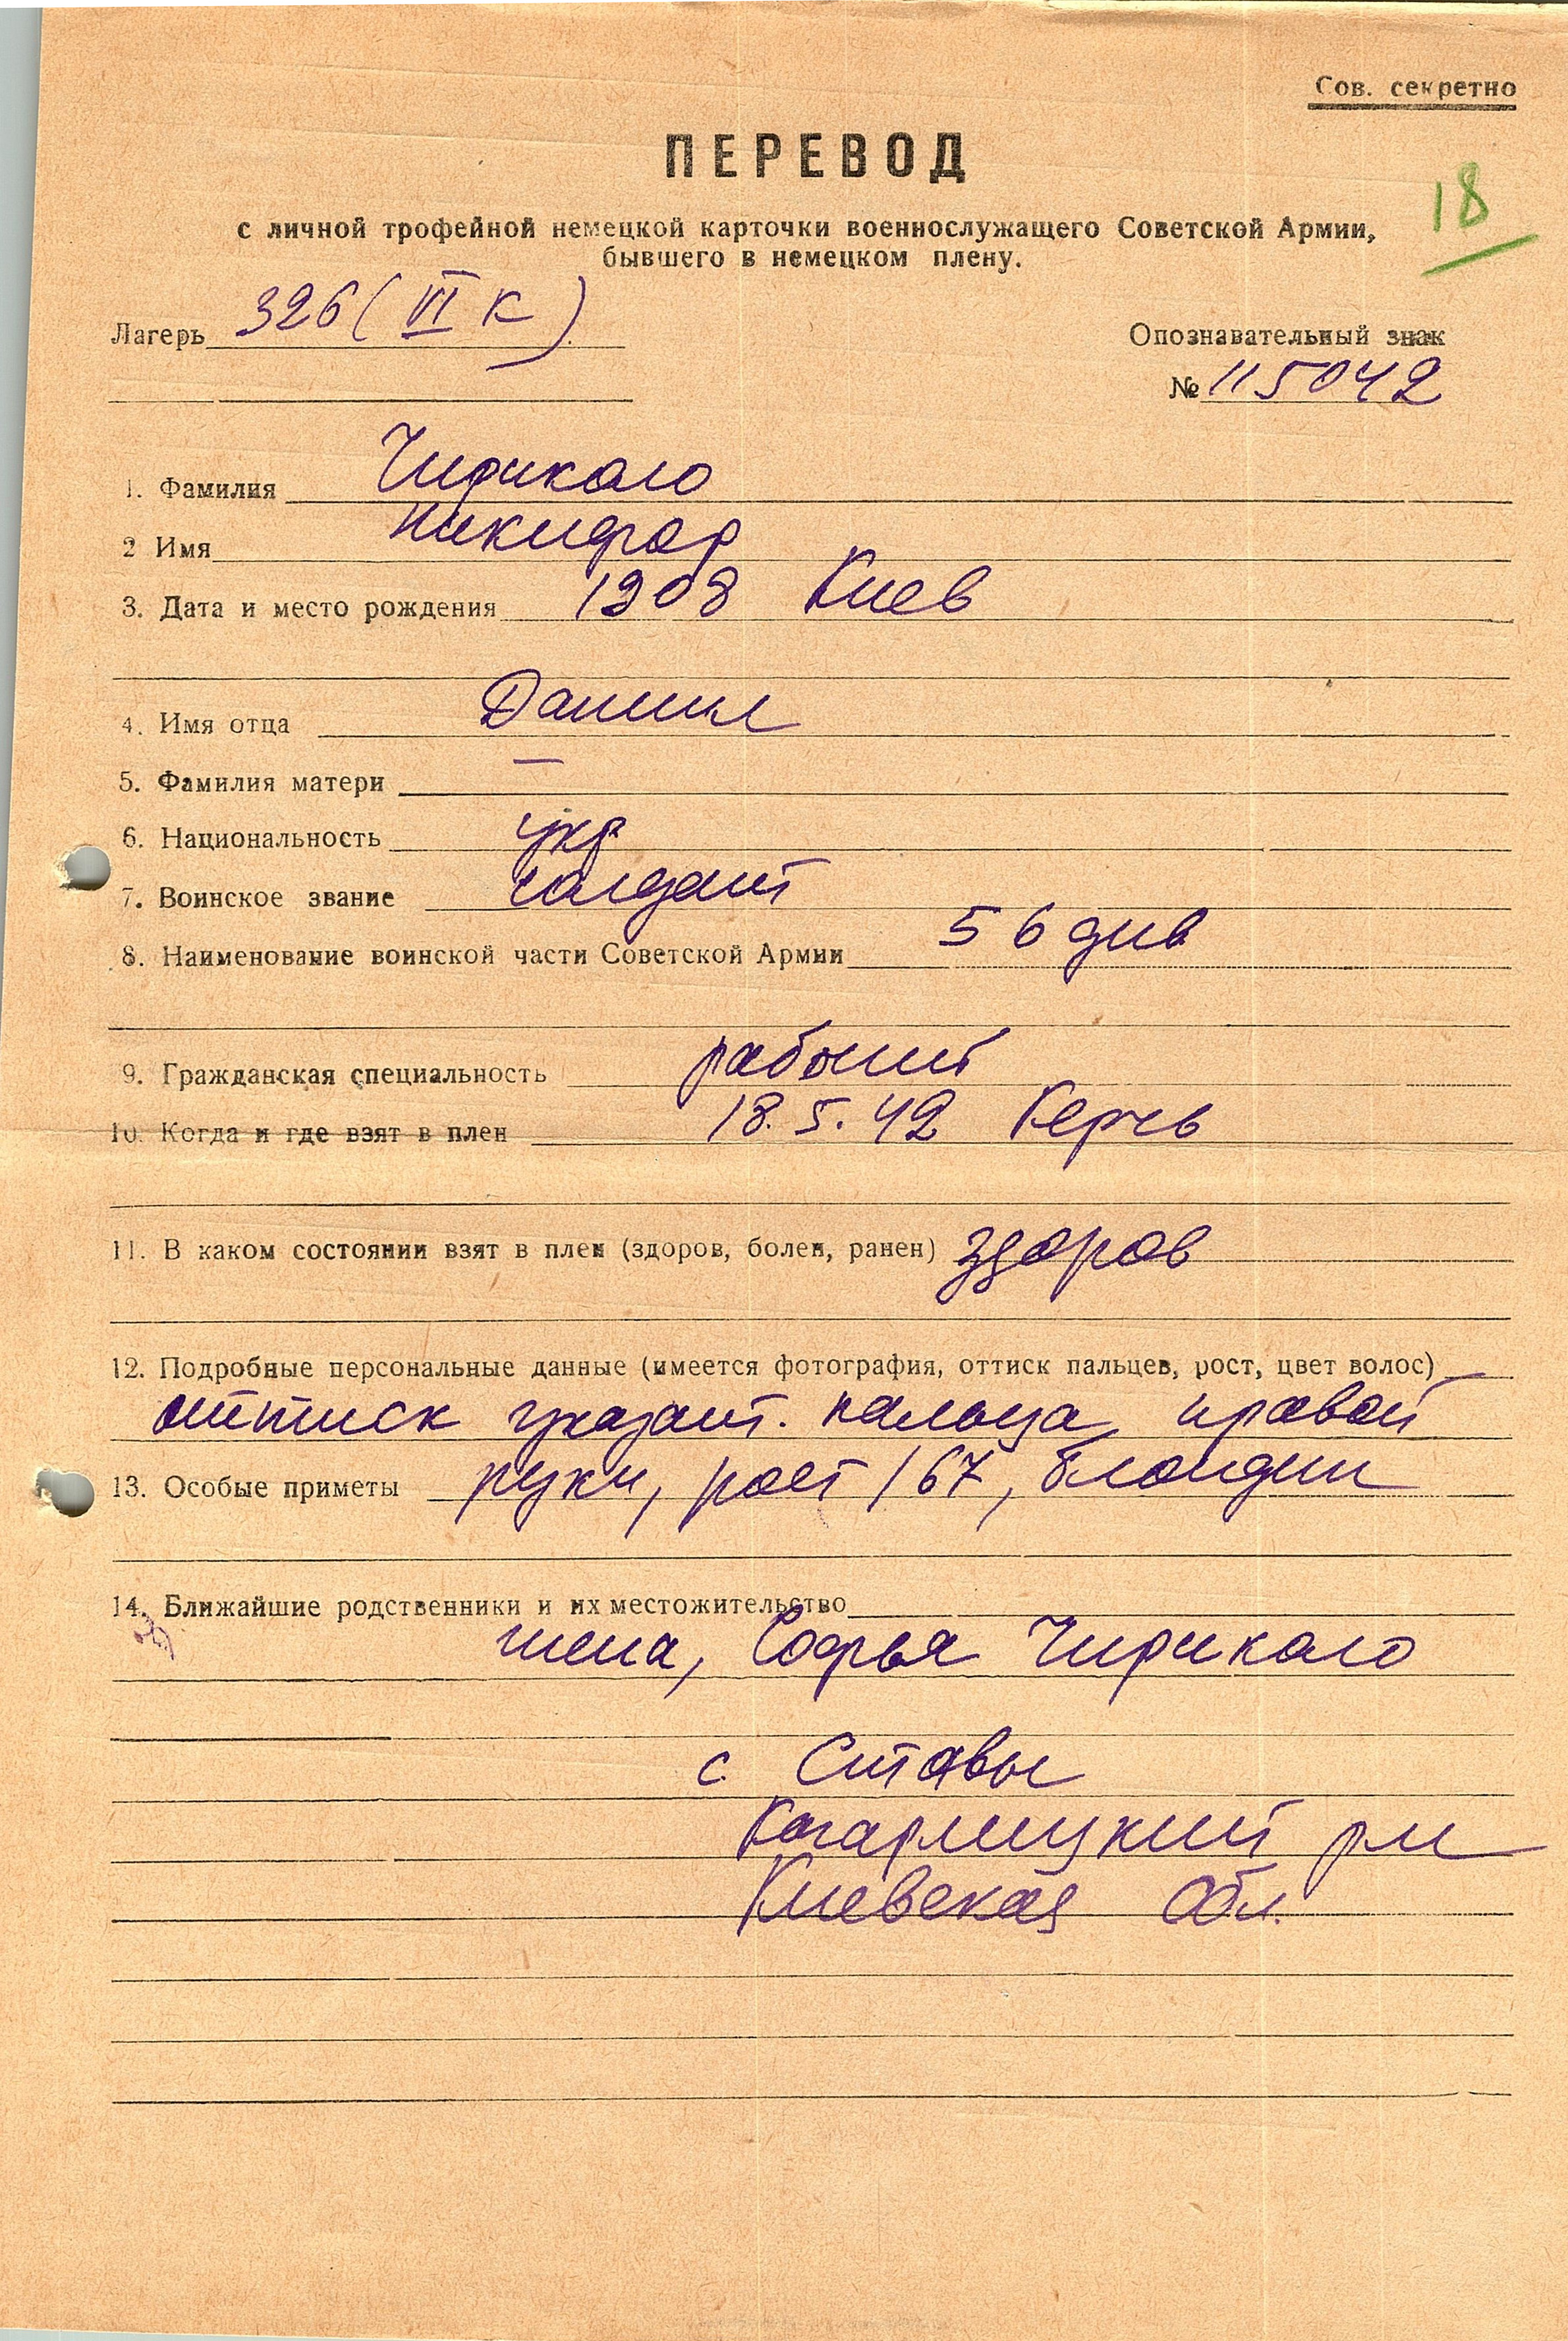 Сов. секретно
ПЕРЕВОД
18
с личной трофейной немецкой карточки военнослужащего Советской Армии,
бывшего в немецком плену.
Лагерь 326 (VI К)
Опознавательный знак
№ 115042
1. Фамилия Чирикало
2 Имя Никифор
3. Дата и место рождения 1908 Киев
4. Имя отца Даниил
5. Фамилия матери —
6. Национальность укр
7. Воинское звание солдат
8. Наименование воинской части Советской Армии 56 див
9. Гражданская специальность рабочий
10. Когда и где взят в плен 18.5.42 Керчь
11. В каком состоянии взят в плен (здоров, болен, ранен) здоров
12. Подробные персональные данные (имеется фотография, оттиск пальцев, рост, цвет волос)
оттиск указат. пальца правой
13. Особые приметы руки, рост 167, блондин
14. Ближайшие родственники и их местожительство
жена, Софья Чирикало
с. Ставы
Кагарлицкий рн
Киевская обл.